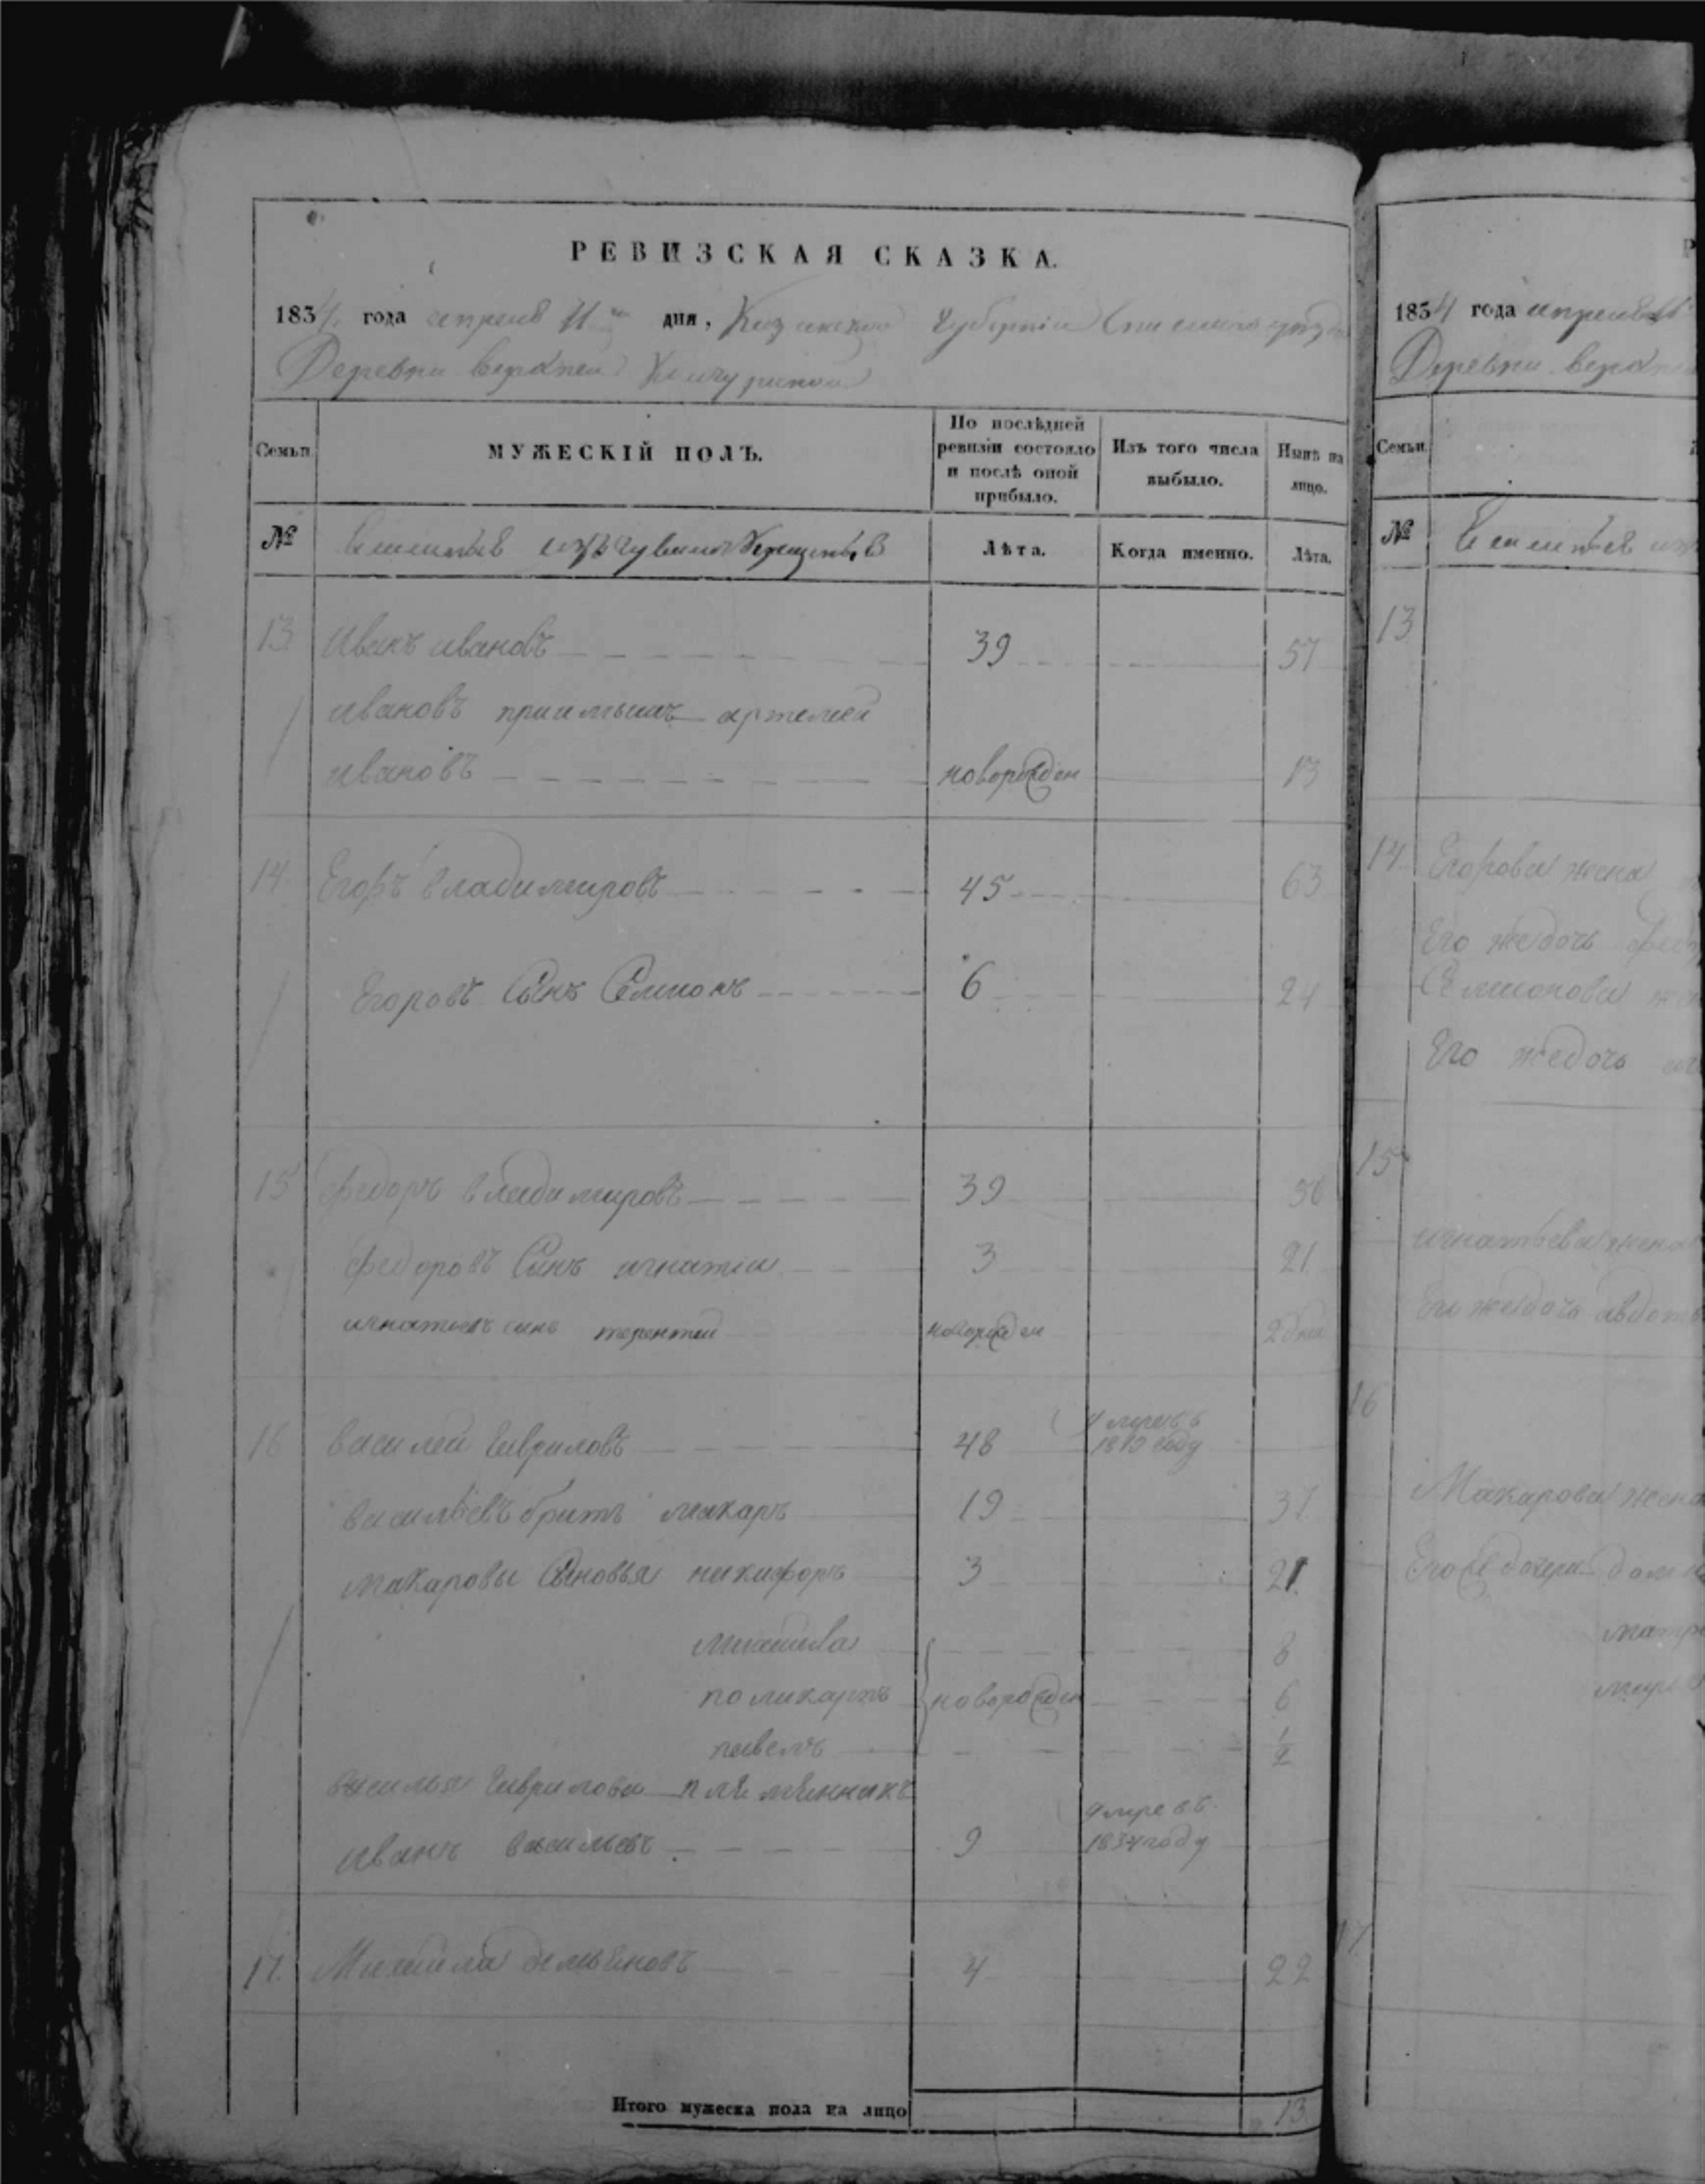 РЕВИЗСКАЯ СКАЗКА.
1834 года апреля 11 дня, Казанской губернии Спасского уезда
Деревни верхней Качуриной
Семьи.
МУЖЕСКІЙ ПОЛЪ.
По послѣдней ревизіи состояло и послѣ оной прибыло.
Изъ того числа выбыло.
Нынѣ на лицо.
№
изъ чувашъ
Лѣта.
Когда именно.
Лѣта.
13 Иванъ ивановъ 39 57
ивановъ приимышъ артемей
ивановъ новорожден 13
14 Егоръ владимировъ 45 63
Егоровъ Сынъ Семионъ 6 24
15 федоръ владимировъ 39 56
федоровъ Сынъ игнатіи 3 21
игнатьевъ сынъ терентеи новорожден 2 дни
16 василеи гавриловъ 48 умре въ
18 году
васильевъ братъ макаръ 19 37
макаровы Сыновья никифоръ 3 21
михаила 8
поликарпъ новорожден 6
павелъ 1/2
василья гаврилова племянникъ
иванъ васильевъ 9 умре въ
1834 году
17. Михаила демьяновъ 4 22
Итого мужеска пола на лицо 13
1854 года апреля
Деревни верхней
Семьи.
№
13
14 Егорова жена
Его же дочь
Семионова
Его же дочь
15
игнатьева жена
Его же дочь авдот
16
Макарова жена
Его же дочери дом
матр
мар
17